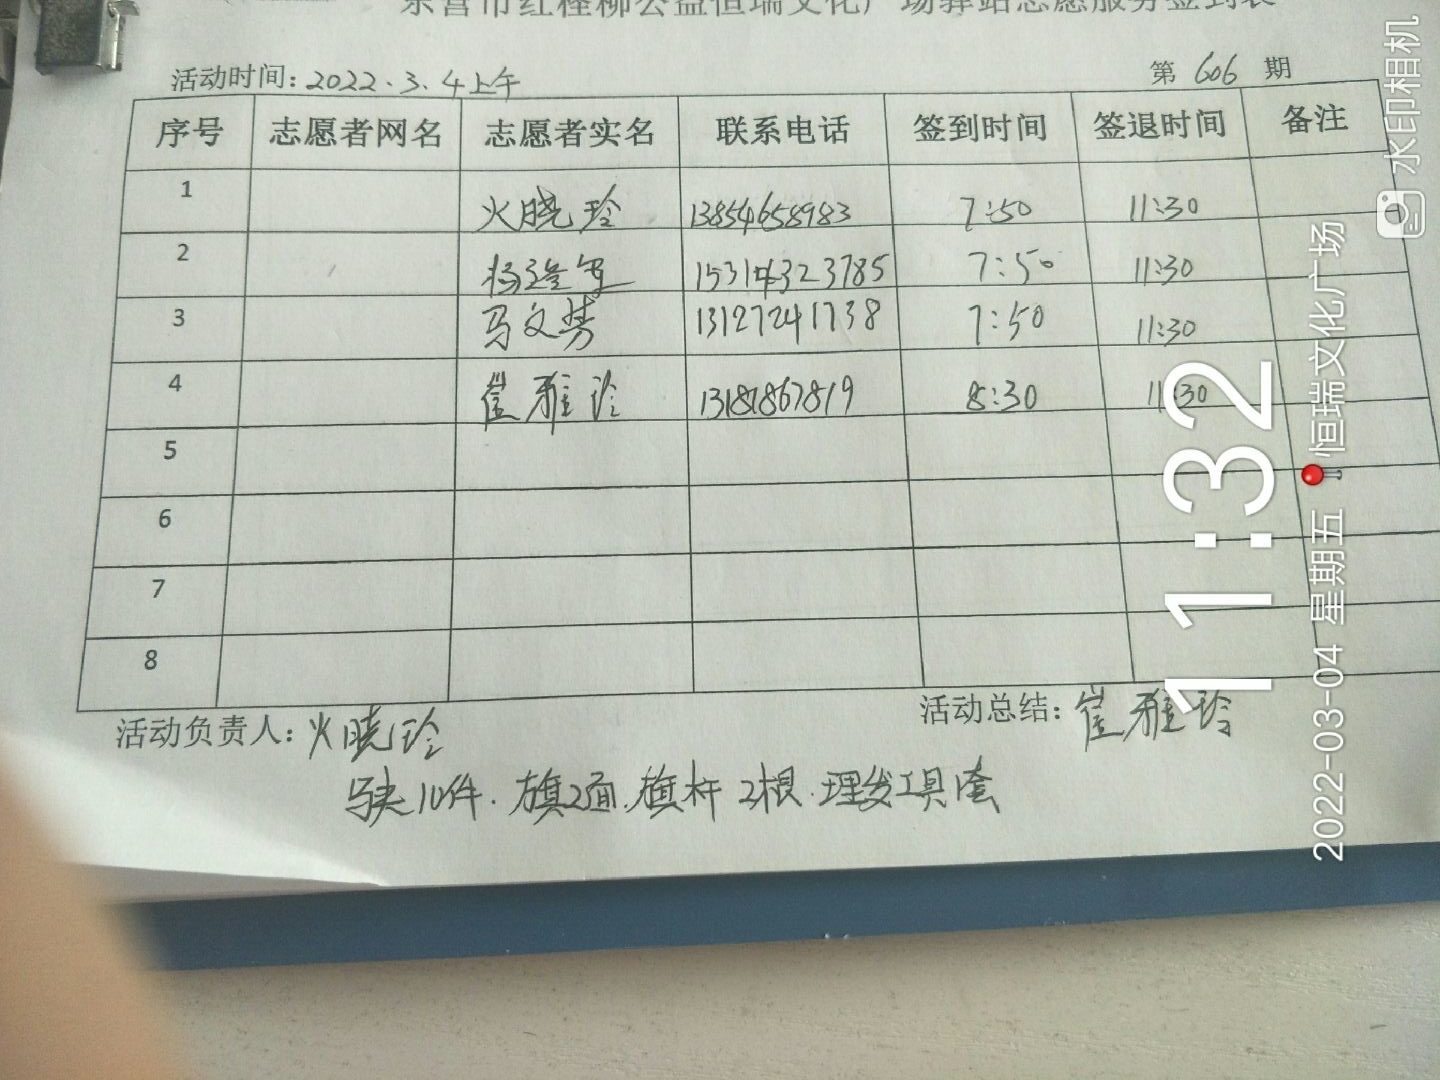 东营市红柽柳公益恒瑞文化广场驿站志愿服务签到表
活动时间：2022.3.4上午 第 606 期
序号 志愿者网名 志愿者实名 联系电话 签到时间 签退时间 备注
1 火晓玲 13854658983 7:50 11:30
2 15314323785 7:50 11:30
3 马文芳 13127241738 7:50 11:30
4 崔雅玲 13181867819 8:30 11:30
5
6
7
8
活动负责人：火晓玲 活动总结：崔雅玲
10件.旗2面.旗杆2根.理发工具
水印相机
11:32
2022-03-04 星期五 恒瑞文化广场